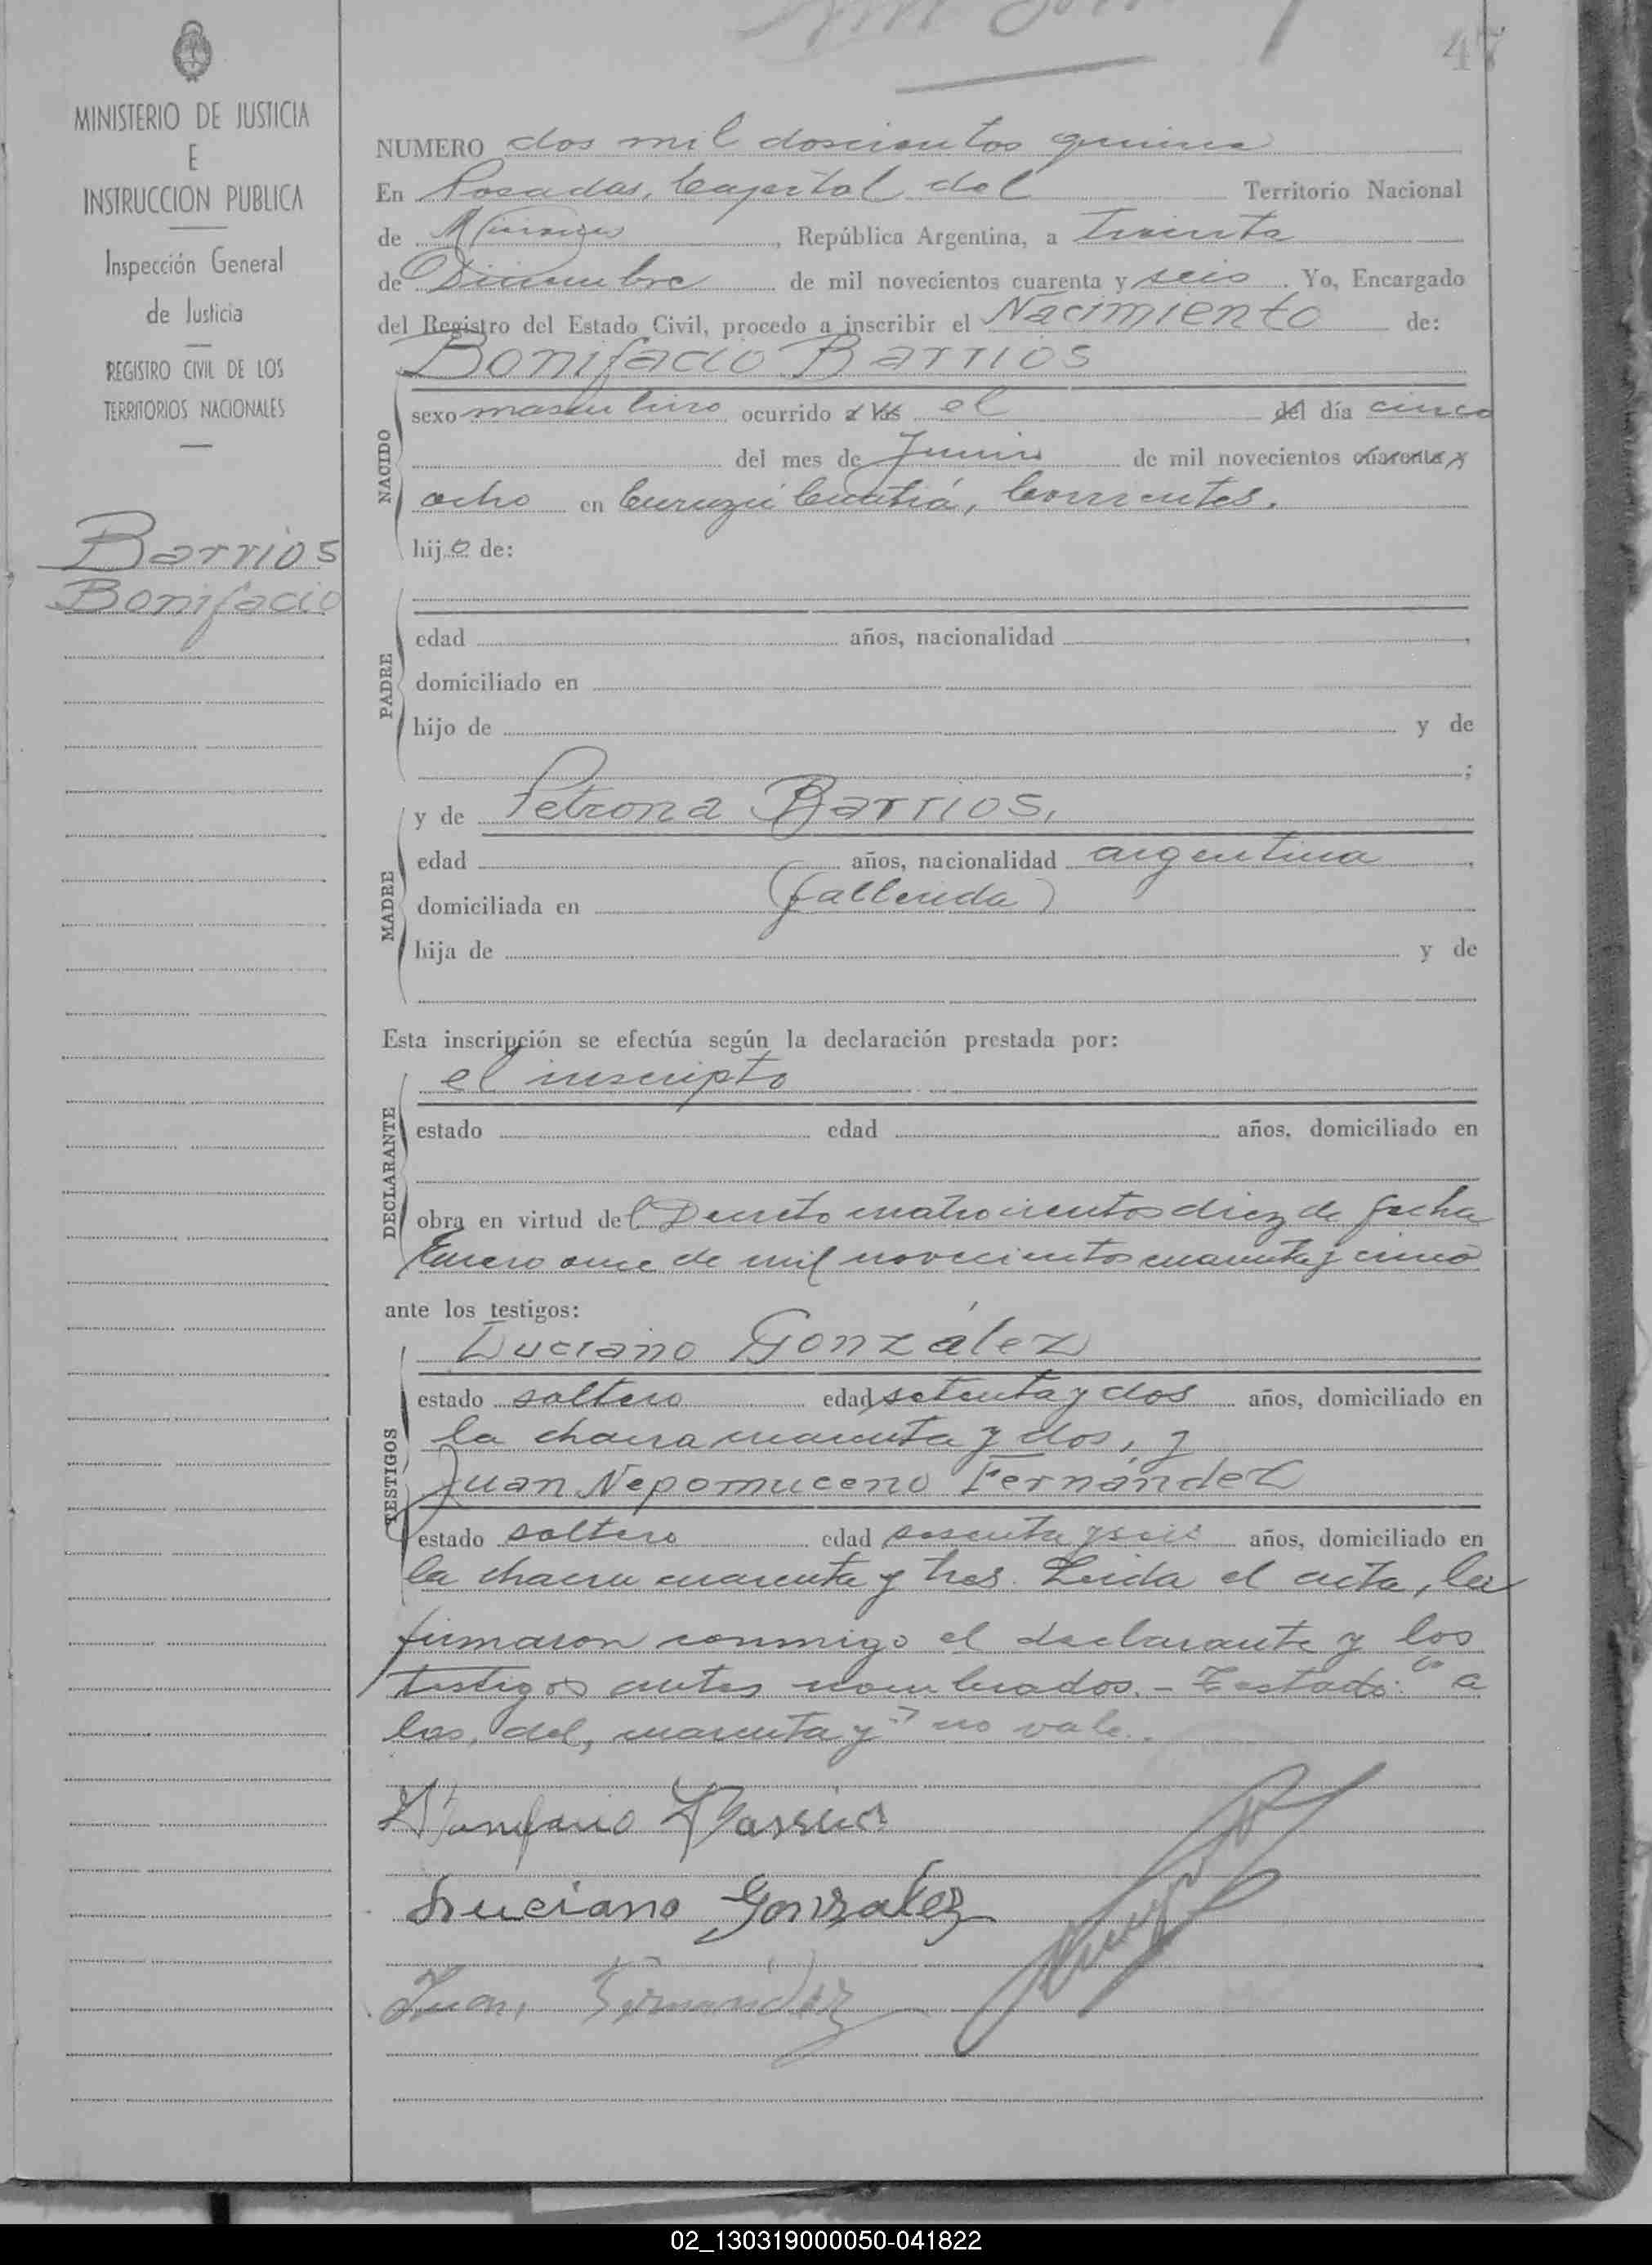 47
MINISTERIO DE JUSTICIA
E
INSTRUCCION PUBLICA
Inspección General
de Justicia
REGISTRO CIVIL DE LOS
TERRITORIOS NACIONALES
Barrios
Bonifacio
NUMERO dos mil doscientos quince
En Posadas, Capital del Territorio Nacional
de Misiones, República Argentina, a treinta
de Diciembre de mil novecientos cuarenta y seis. Yo, Encargado
del Registro del Estado Civil, procedo a inscribir el Nacimiento de:
Bonifacio Barrios
NACIDO
sexo masculino ocurrido a las el del día cinco
del mes de Junio de mil novecientos cuarenta y
ocho en Curuzú Cuatiá, Corrientes.
hijo de:
PADRE
edad años, nacionalidad ,
domiciliado en
hijo de y de
;
MADRE
y de Petrona Barrios,
edad años, nacionalidad argentina,
domiciliada en (fallecida)
hija de y de
Esta inscripción se efectúa según la declaración prestada por:
DECLARANTE
el inscripto
estado edad años, domiciliado en
obra en virtud del Decreto cuatrocientos diez de fecha
Enero once de mil novecientos cuarenta y cinco
ante los testigos:
TESTIGOS
Luciano González
estado soltero edad setenta y dos años, domiciliado en
la chacra cuarenta y dos, y
Juan Nepomuceno Fernández
estado soltero edad sesenta y seis años, domiciliado en
la chacra cuarenta y tres. Leida el acta, la
firmaron conmigo el declarante y los
testigos antes nombrados.- Testado: "a
las, del, cuarenta y" no vale.
Bonifacio Barrios
Luciano Gonzalez
Juan Fernández
02_130319000050-041822